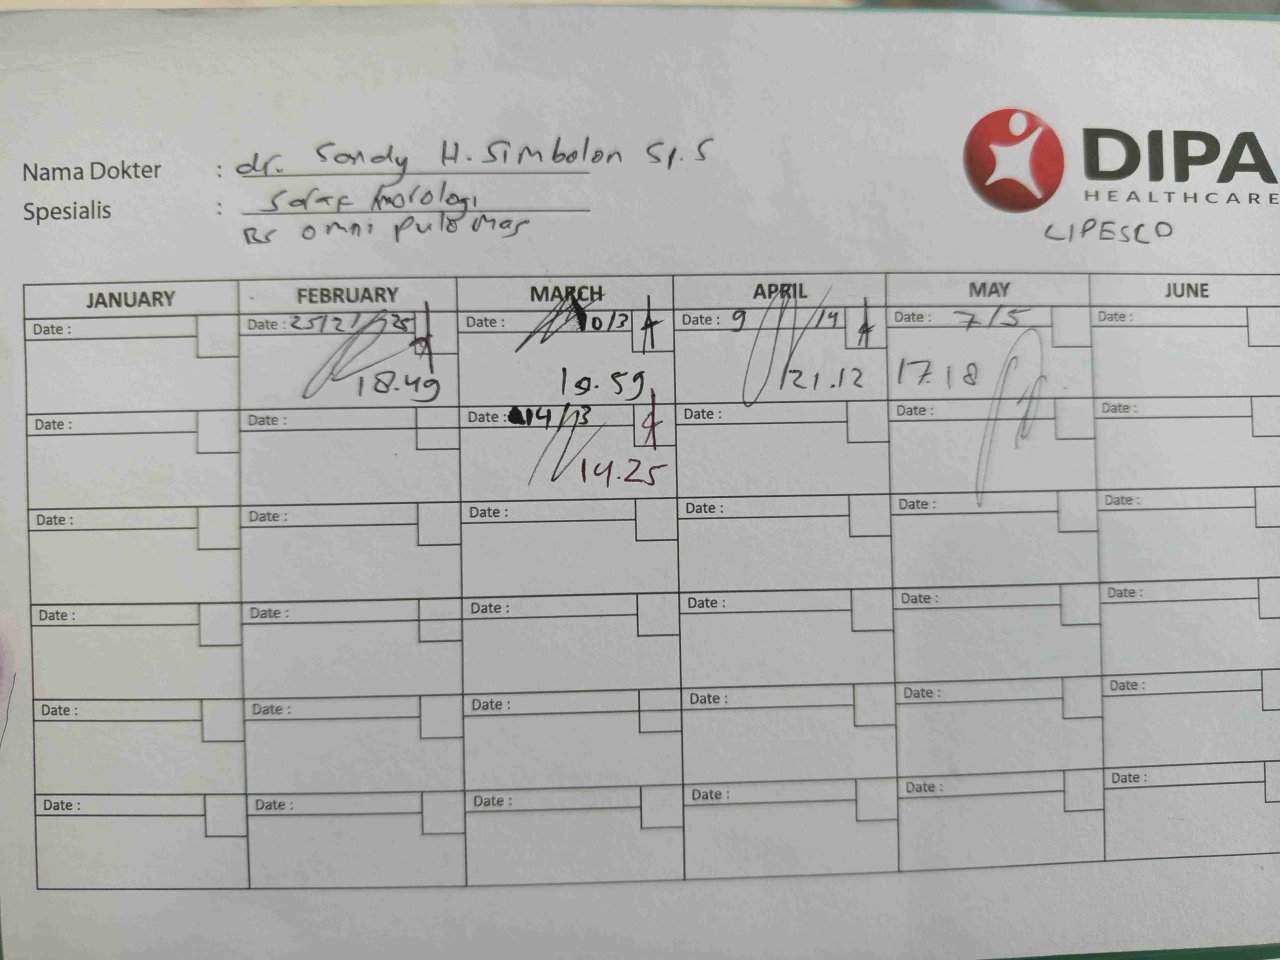 DIPA
HEALTHCARE
Nama Dokter : dr. Sandy H. Simbolon Sp.S
Spesialis : Saraf
Rs omni pulo mas
LIPESCO
JANUARY FEBRUARY MARCH APRIL MAY JUNE
Date : Date : 25/2/25 Date : 10/3 Date : 9/4 Date : 7/5 Date :
18.49 19.59 21.12 17.18
Date : Date : Date : 14/3 Date : Date : Date :
14.25
Date : Date : Date : Date : Date : Date :
Date : Date : Date : Date : Date : Date :
Date : Date : Date : Date : Date : Date :
Date : Date : Date : Date : Date : Date :